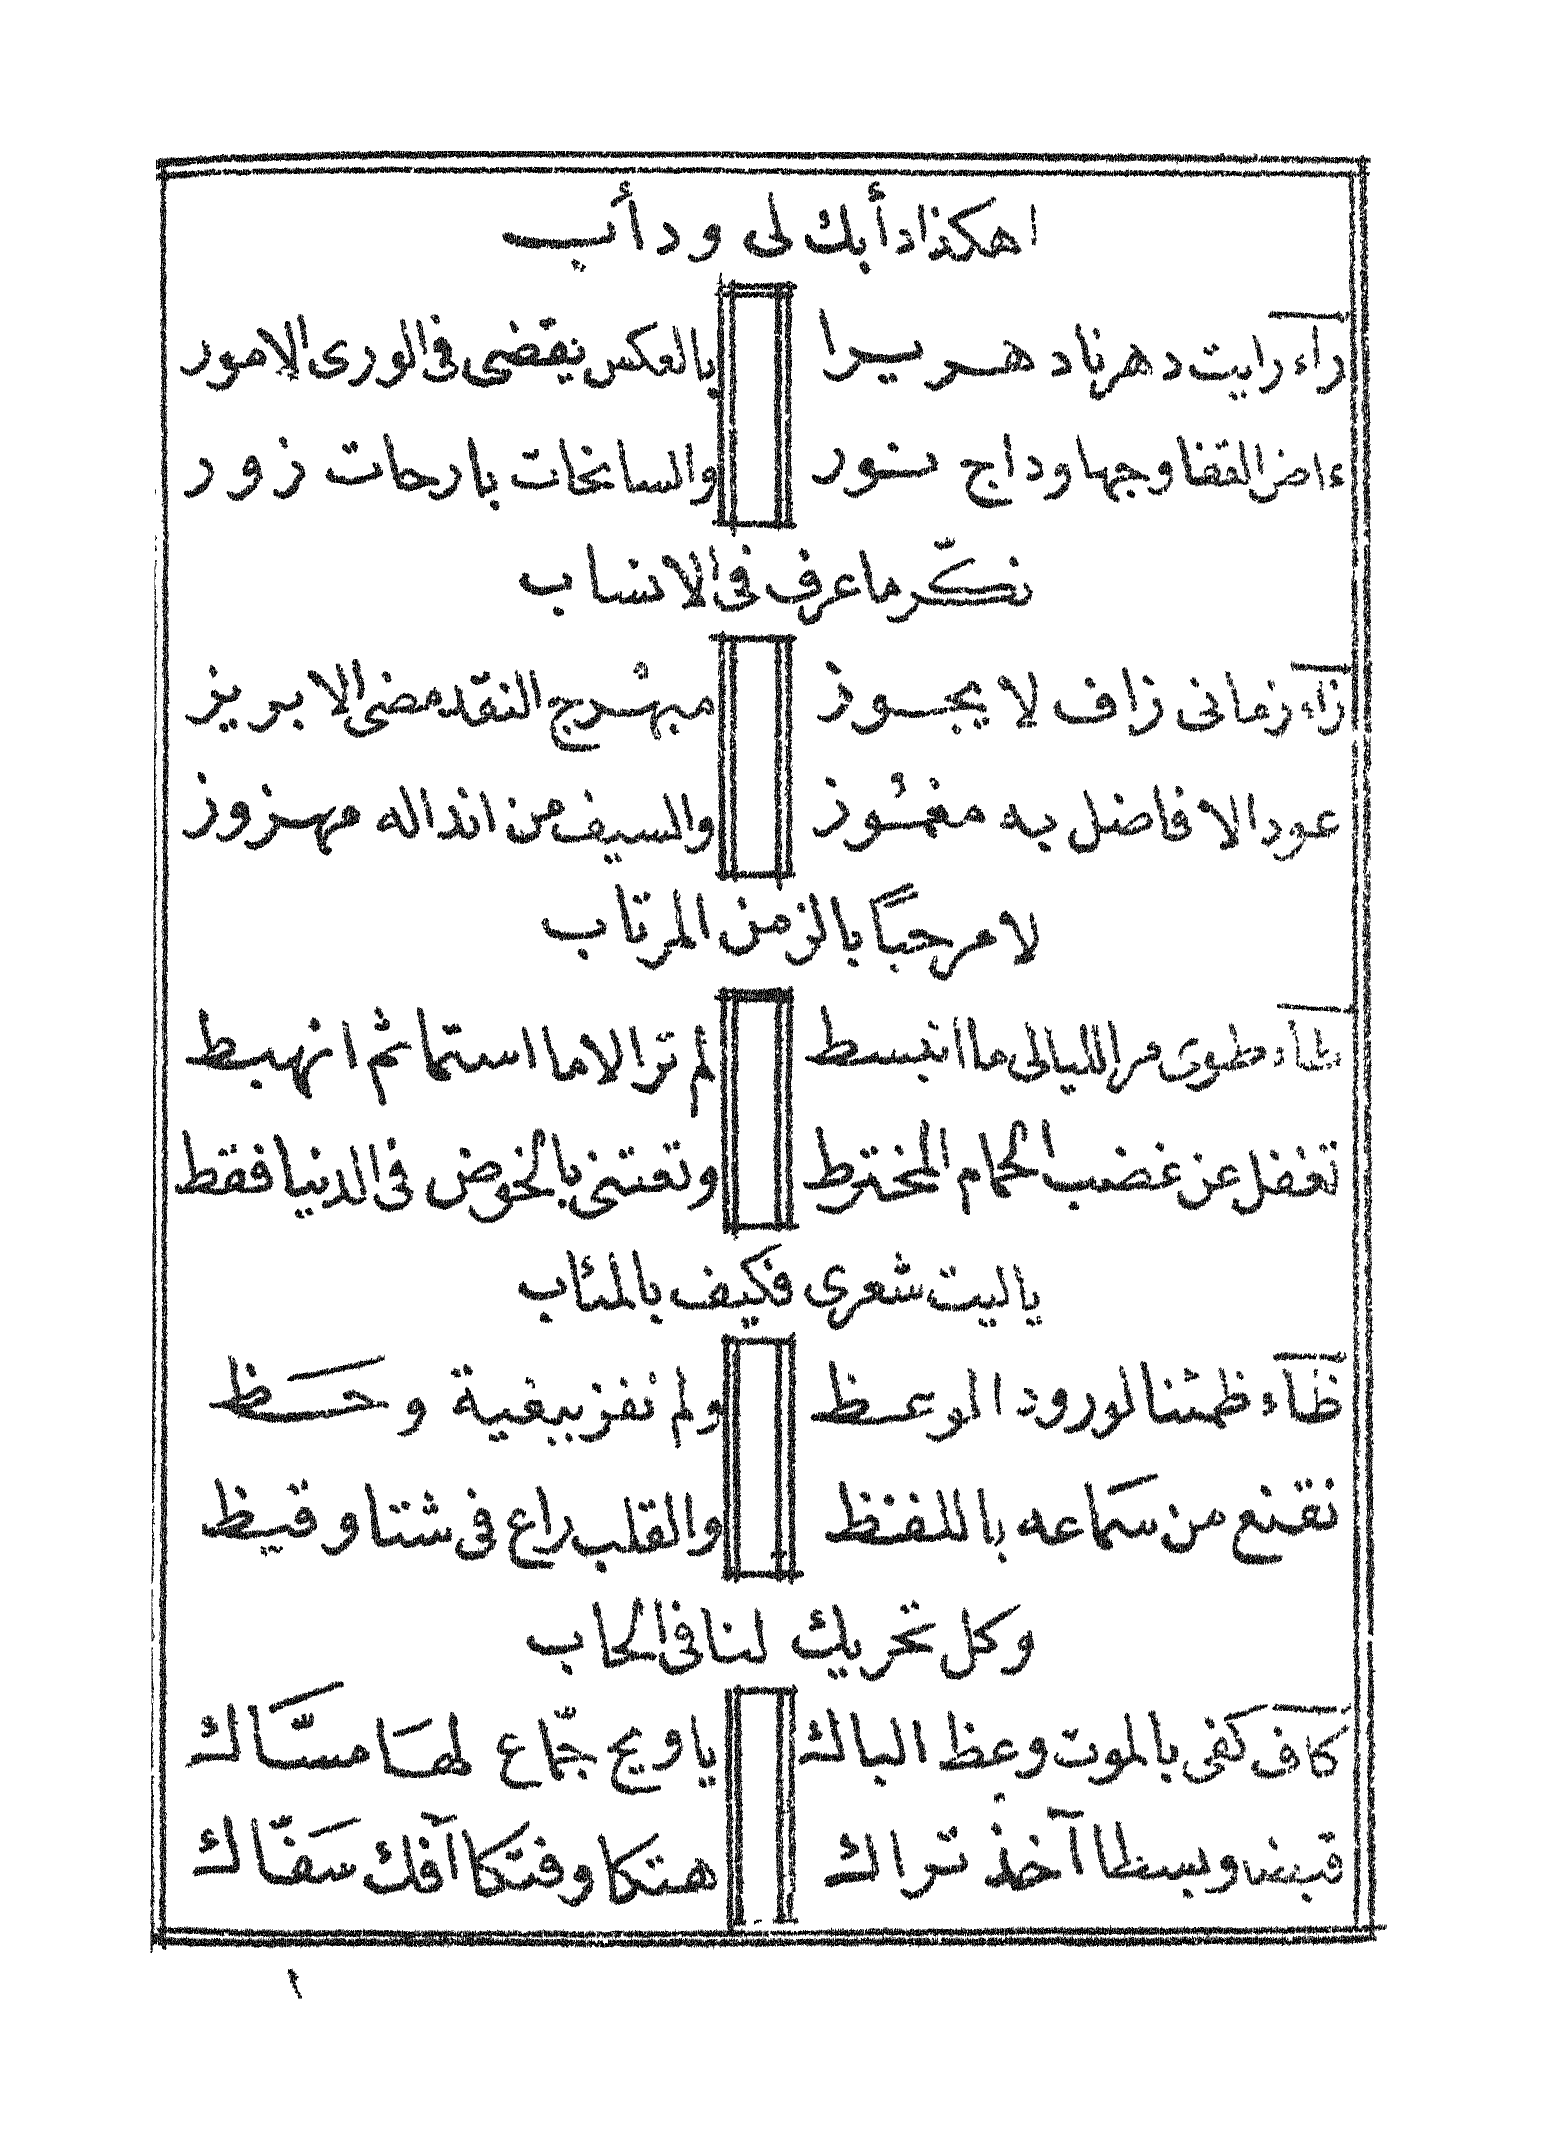 اهكذا دأبك لى ودأب
راء رايت دهرنا دهريرا بالعكس يقضى فى الورى الامور
ءاض القفا وجها وداج نور والسانحات بارحات زور
نكّر ما عرف فى الانساب
زاء زمانى زاف لا يجوز مبهْرج النقد مضى الابريز
عود الافاضل به مغمُوز والسيف من انداله مهزوز
لا مرحباً بالزمن المرتاب
طاء طوى مر الليالى ما انبسط لم تر الاما استما ثم انهبط
تغفل عن غضب الحمام المخترط وتعتنى بالخوض فى الدنيا فقط
ياليت شعرى فكيف بالمئاب
ظاء ظمئنا لورود الوعظ ولم نفز ببغية وحظ
نقنع من سماعه باللفظ والقلب راع فى شتا وقيظ
وكل تحريك لنا فى الحاب
كاف كفى بالموت وعظ الباك ياويح جمّاع لها مسّاك
قبضا وبسطا آخذ تراك هتكا وفتكا آفك سفّاك
١